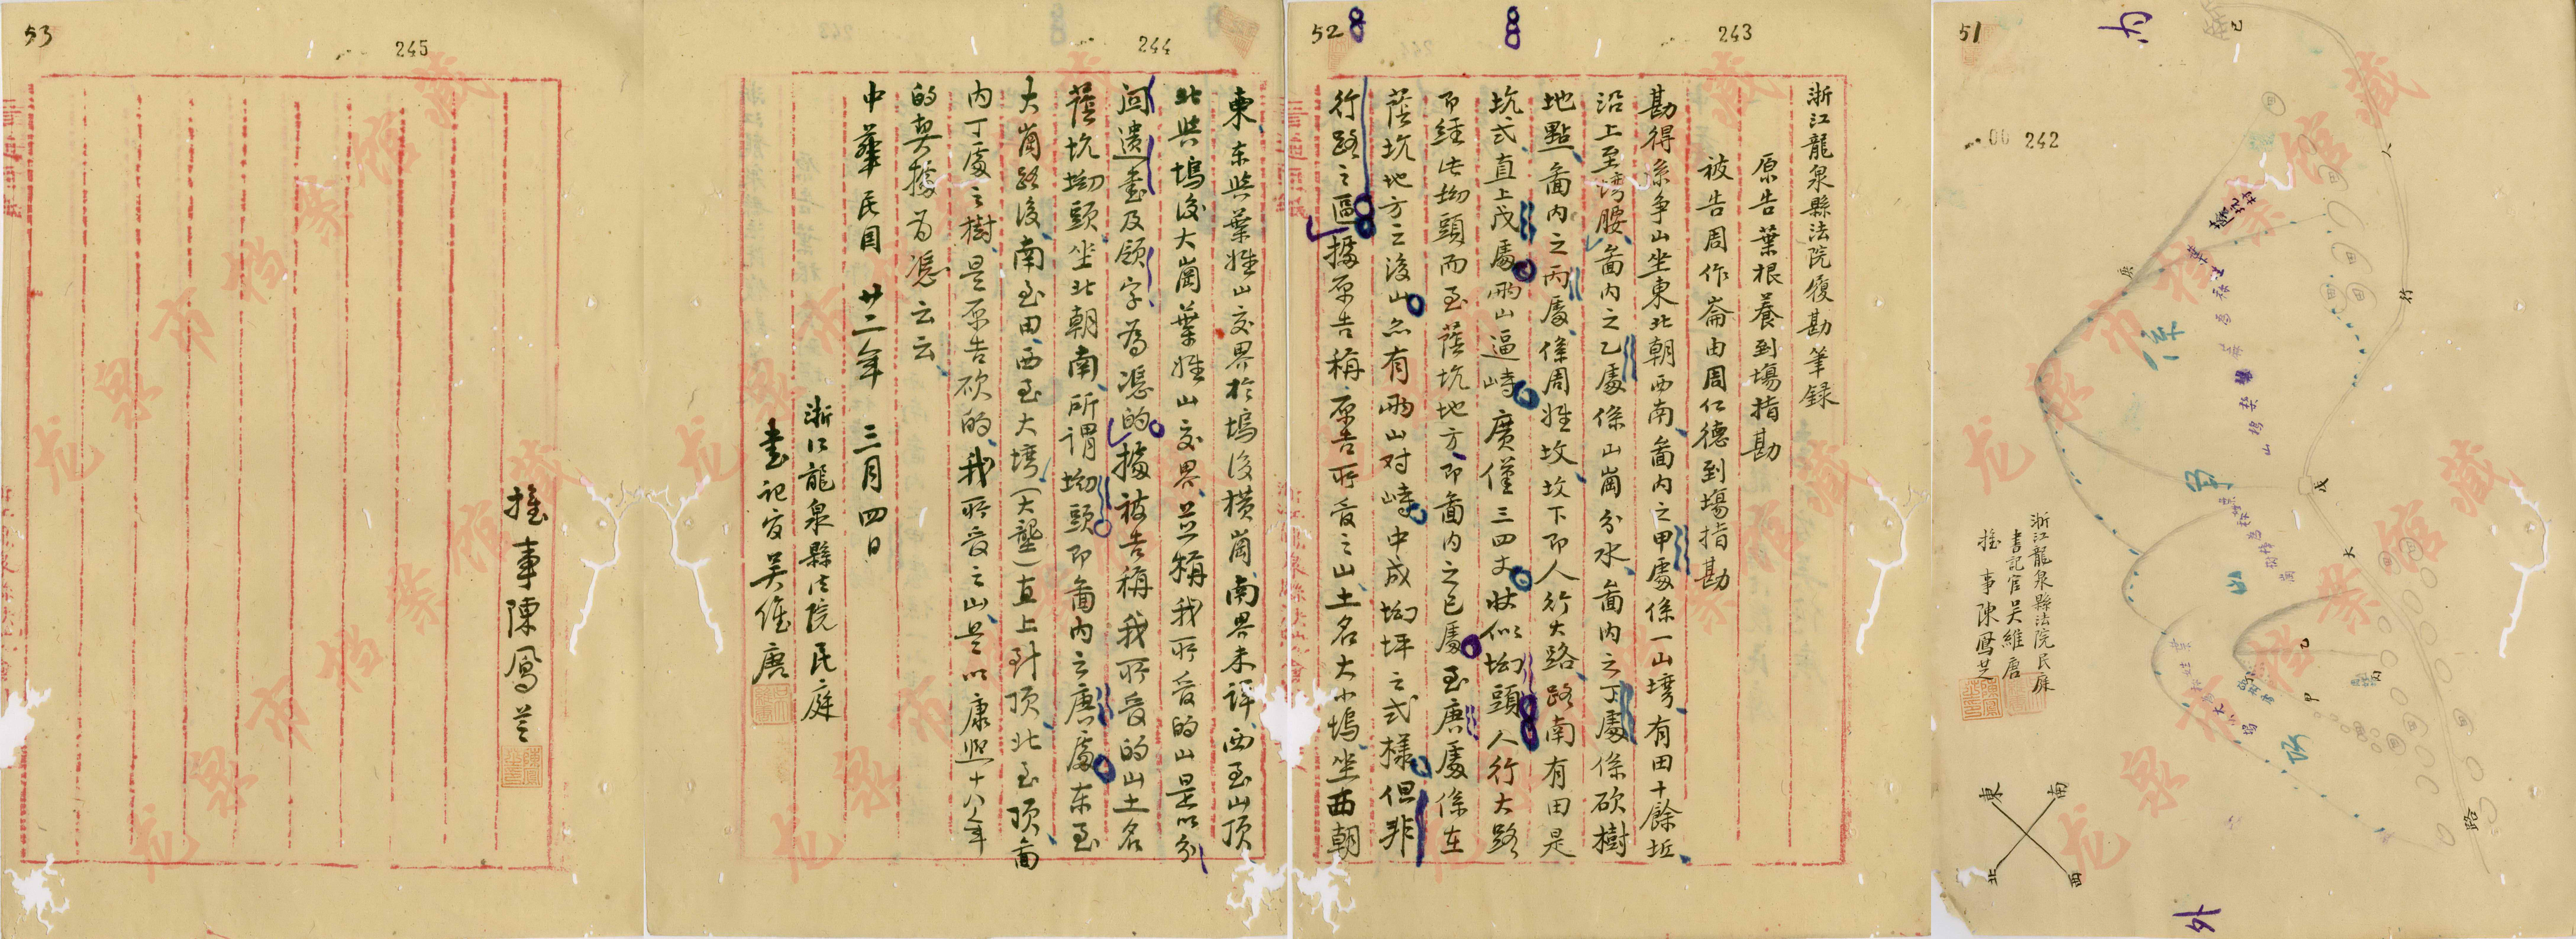 浙江龍泉縣法院履勘筆錄
原告葉根養到場指勘
被告周作崙由周仁德到場指勘
勘得係爭山坐東北朝西南、畵內之甲處係一山塆、有田十餘坵、
沿上至塆腰、畵內之乙處係山崗分水、畵內之丁處係砍樹
地點、畵內之丙處、係周姓坟、坟下即人行大路、路南有田是
坑式直上戊處兩山逼峙廣僅三四丈狀似坳頭人行大路
即經此坳頭而至蔭坑地方、即畵內之已處至庚處係在
蔭坑地方之後山亦有兩山对峙中成坳坪之式樣但非
行路之區據原告稱原告所管之山土名大小塢坐西朝
東、东與葉姓山交界於塢後橫崗、南界未詳、西至山頂
北與塢後大崗葉姓山交界、並稱我所管的山是以分
䦰遺書及領字為憑的、據被告稱我所管的山土名
蔭坑坳頭坐北朝南、所謂坳頭即畵內之庚處东至
大崗路後、南至田、西至大塆(大壟)直上到頂、北至頂、畵
內丁處之樹是原告砍的、我所管之山是以康熙十八年
的契據为憑云云、
中華民囯廿二年三月四日
浙江龍泉縣法院民庭
書記官吳維唐
推事陳鳳芝
53
245
244
52
243
51
242
內
外
浙江龍泉縣法院民庭
書記官吳維唐
推事陳鳳芝
東
南
北
西
人
行
大
路
甲
乙
丙
戊
己
庚
龙泉市档案馆藏